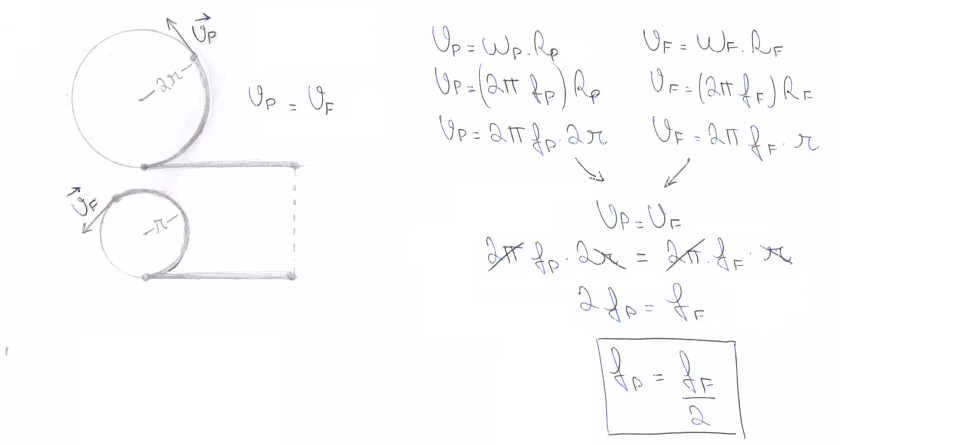 v⃗P
2r
vP = vF
v⃗F
r
vP = ωP . RP
vP = (2π fP) RP
vP = 2π fP . 2r
vF = ωF . RF
vF = (2π fF) RF
vF = 2π fF . r
vP = vF
2π fP . 2r = 2π . fF . r
2 fP = fF
fP = fF / 2